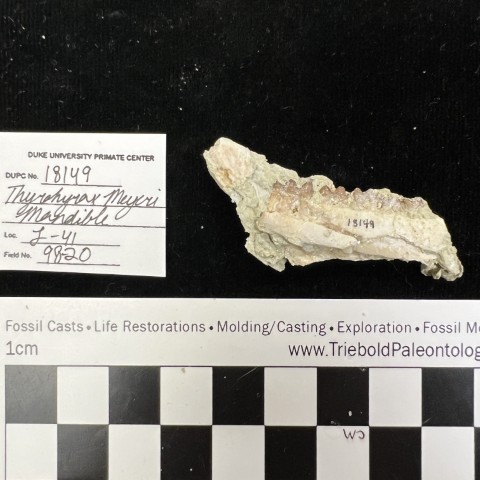 DUKE UNIVERSITY PRIMATE CENTER
DUPC No. 18149
Thyrohyrax Meyeri
Mandible
Loc. L-41
Field No. 9820
18149
Fossil Casts • Life Restorations • Molding/Casting • Exploration • Fossil
1cm
www.TrieboldPaleontolog